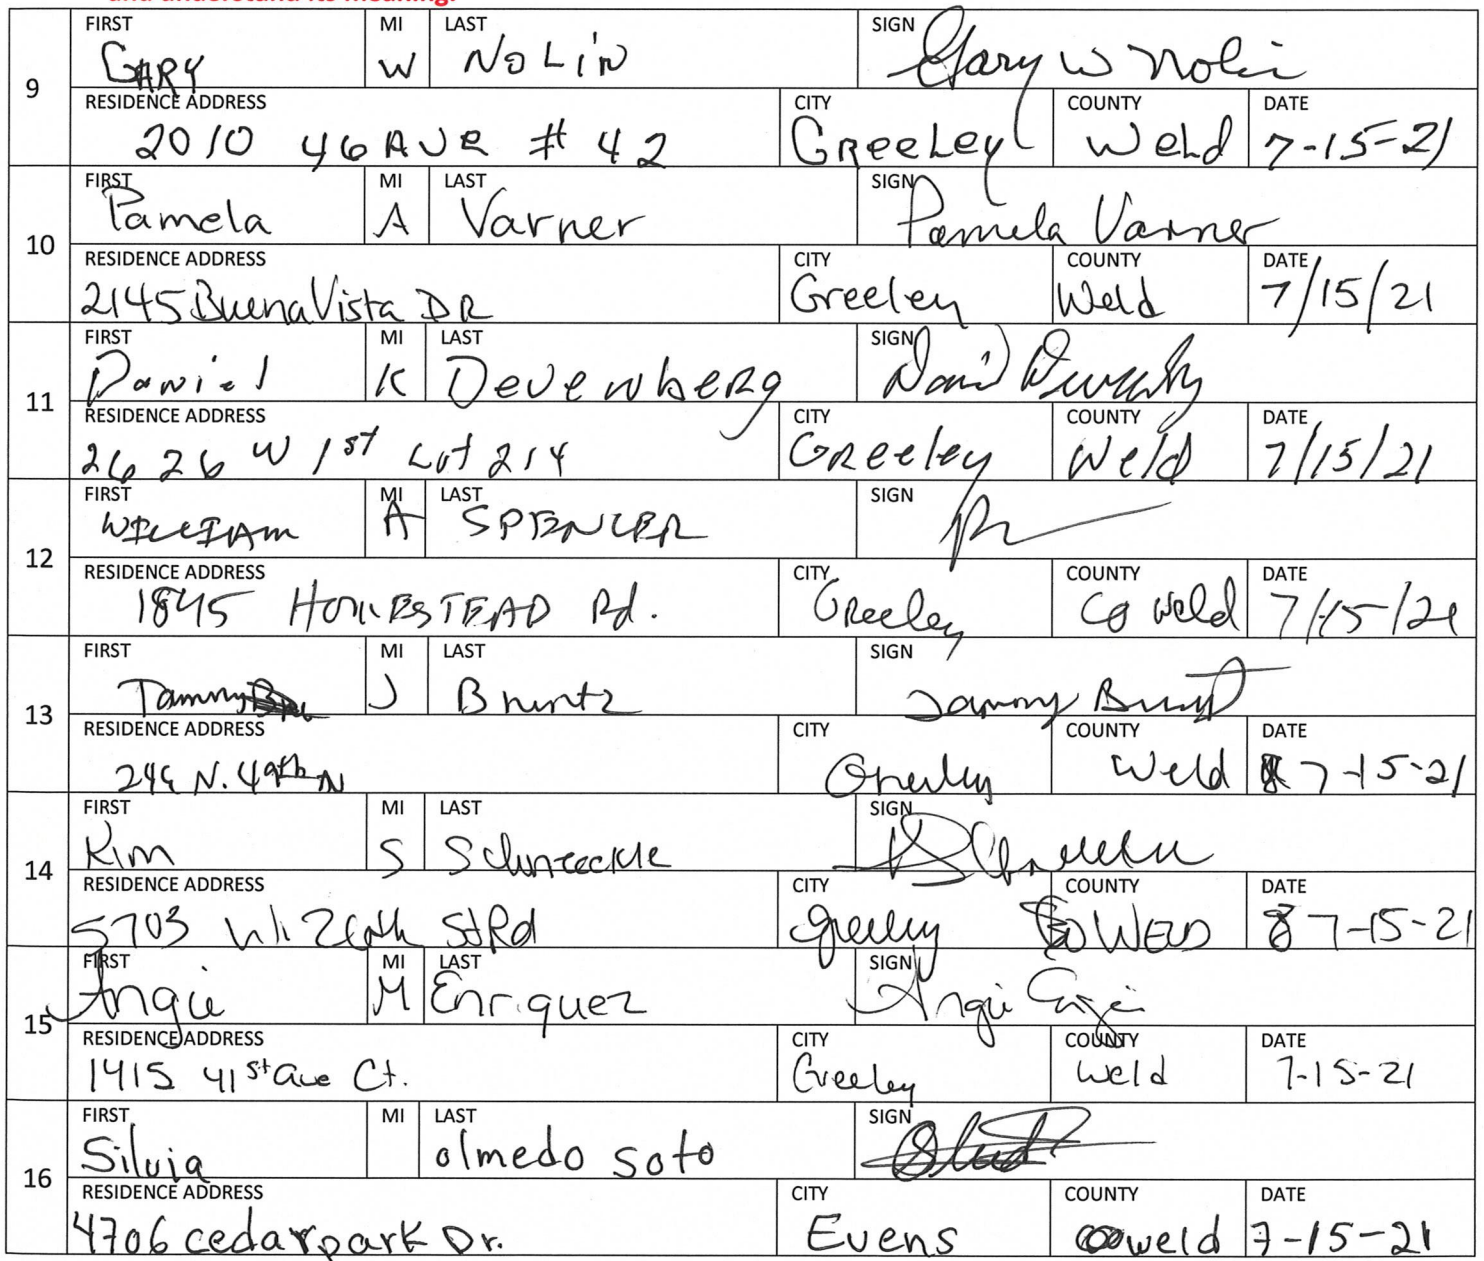 and understand its meaning.
FIRST MI LAST SIGN
GARY W NOLIN Gary W Nolin
9
RESIDENCE ADDRESS CITY COUNTY DATE
2010 46 AVE # 42 GReeLey WeLd 7-15-21
FIRST MI LAST SIGN
Pamela A Varner Pamela Varner
10
RESIDENCE ADDRESS CITY COUNTY DATE
2145 Buena Vista DR Greeley Weld 7/15/21
FIRST MI LAST SIGN
Daniel K Devenberg
11
RESIDENCE ADDRESS CITY COUNTY DATE
2626 W 1st Lot 214 GReeley Weld 7/15/21
FIRST MI LAST SIGN
WILLIAM A SPENCER
12
RESIDENCE ADDRESS CITY COUNTY DATE
1845 HOMESTEAD Rd. Greeley CO Weld 7/15/21
FIRST MI LAST SIGN
Tammy J Bruntz Tammy
13
RESIDENCE ADDRESS CITY COUNTY DATE
N. 49th Greeley Weld 7-15-21
FIRST MI LAST SIGN
Kim S Schneeckle
14
RESIDENCE ADDRESS CITY COUNTY DATE
5703 W. StRd greeley WELD 7-15-21
FIRST MI LAST SIGN
Angie M Enriquez Angie
15
RESIDENCE ADDRESS CITY COUNTY DATE
1415 41st ave Ct. Greeley weld 7-15-21
FIRST MI LAST SIGN
Silvia olmedo soto
16
RESIDENCE ADDRESS CITY COUNTY DATE
4706 cedarpark Dr. Evens weld 7-15-21